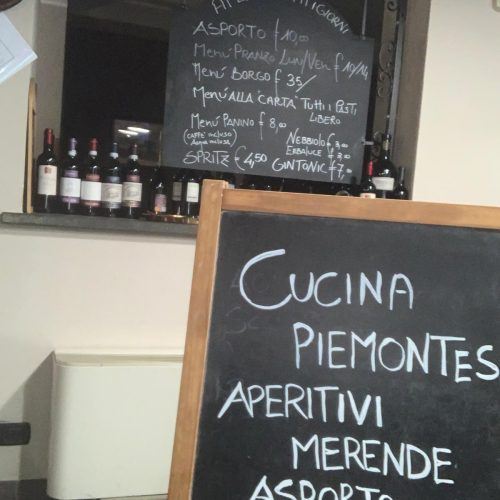 ASPORTO € 10,00
MENÚ PRANZO LUN/VEN € 10/14
MENÚ BORGO € 35/
MENÚ ALLA "CARTA" TUTTI I PASTI,
LIBERO
MENÚ PANINO € 8,00
(CAFFÈ INCLUSO
ACQUA INCLUSA)
NEBBIOLO € 3,00
ERBALUCE € 3,00
SPRITZ € 4,50 GINTONIC € 7,
CUCINA
PIEMONTES
APERITIVI
MERENDE
ASPORTO